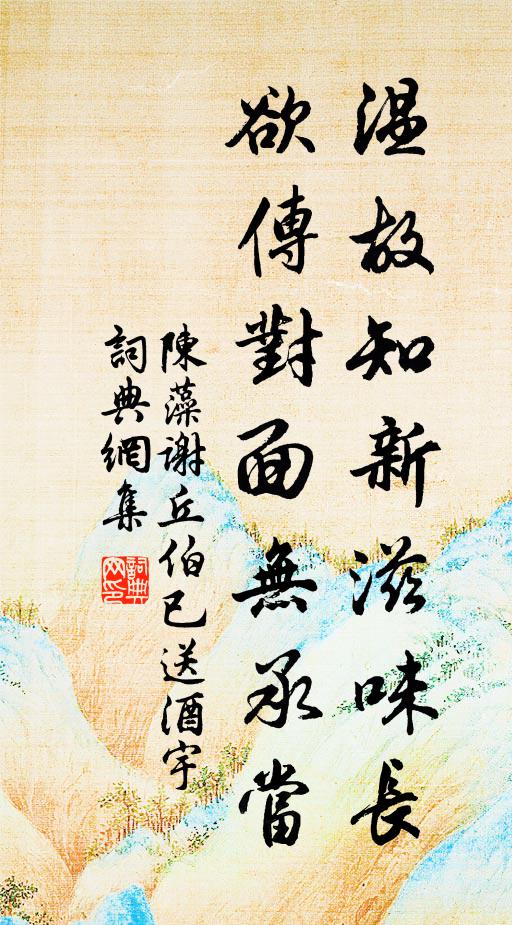 溫故知新滋味長
欲傳對面無承當
陳藻謝丘伯已送酒宇
詞典網集
詞典网印